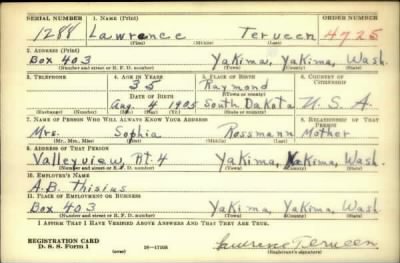 SERIAL NUMBER 1. NAME (Print) ORDER NUMBER
1288 Lawrence Terveen 4725
(First) (Middle) (Last)
2. ADDRESS (Print)
Box 403 Yakima, Yakima, Wash.
(Number and street or R. F. D. number) (Town) (County) (State)
3. TELEPHONE 4. AGE IN YEARS 5. PLACE OF BIRTH 6. COUNTRY OF CITIZENSHIP
35 Raymond
DATE OF BIRTH (Town or county)
Aug. 4 1905 South Dakota U. S. A.
(Exchange) (Number) (Mo.) (Day) (Yr.) (State or country)
7. NAME OF PERSON WHO WILL ALWAYS KNOW YOUR ADDRESS 8. RELATIONSHIP OF THAT PERSON
Mrs. Sophia Rossmann Mother
(Mr., Mrs., Miss) (First) (Middle) (Last)
9. ADDRESS OF THAT PERSON
Valleyview, Rt. 4 Yakima, Yakima, Wash.
(Number and street or R. F. D. number) (Town) (County) (State)
10. EMPLOYER'S NAME
A.B. Thisius
11. PLACE OF EMPLOYMENT OR BUSINESS
Box 403 Yakima, Yakima, Wash.
(Number and street or R. F. D. number) (Town) (County) (State)
I AFFIRM THAT I HAVE VERIFIED ABOVE ANSWERS AND THAT THEY ARE TRUE.
REGISTRATION CARD
D. S. S. Form 1 (over) 16—17105 Lawrence Terveen
(Registrant's signature)